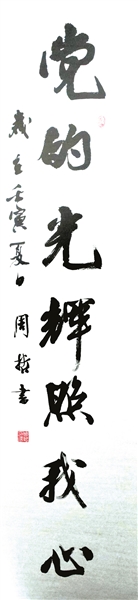 党的光辉照我心
岁在壬寅夏日
周哲书